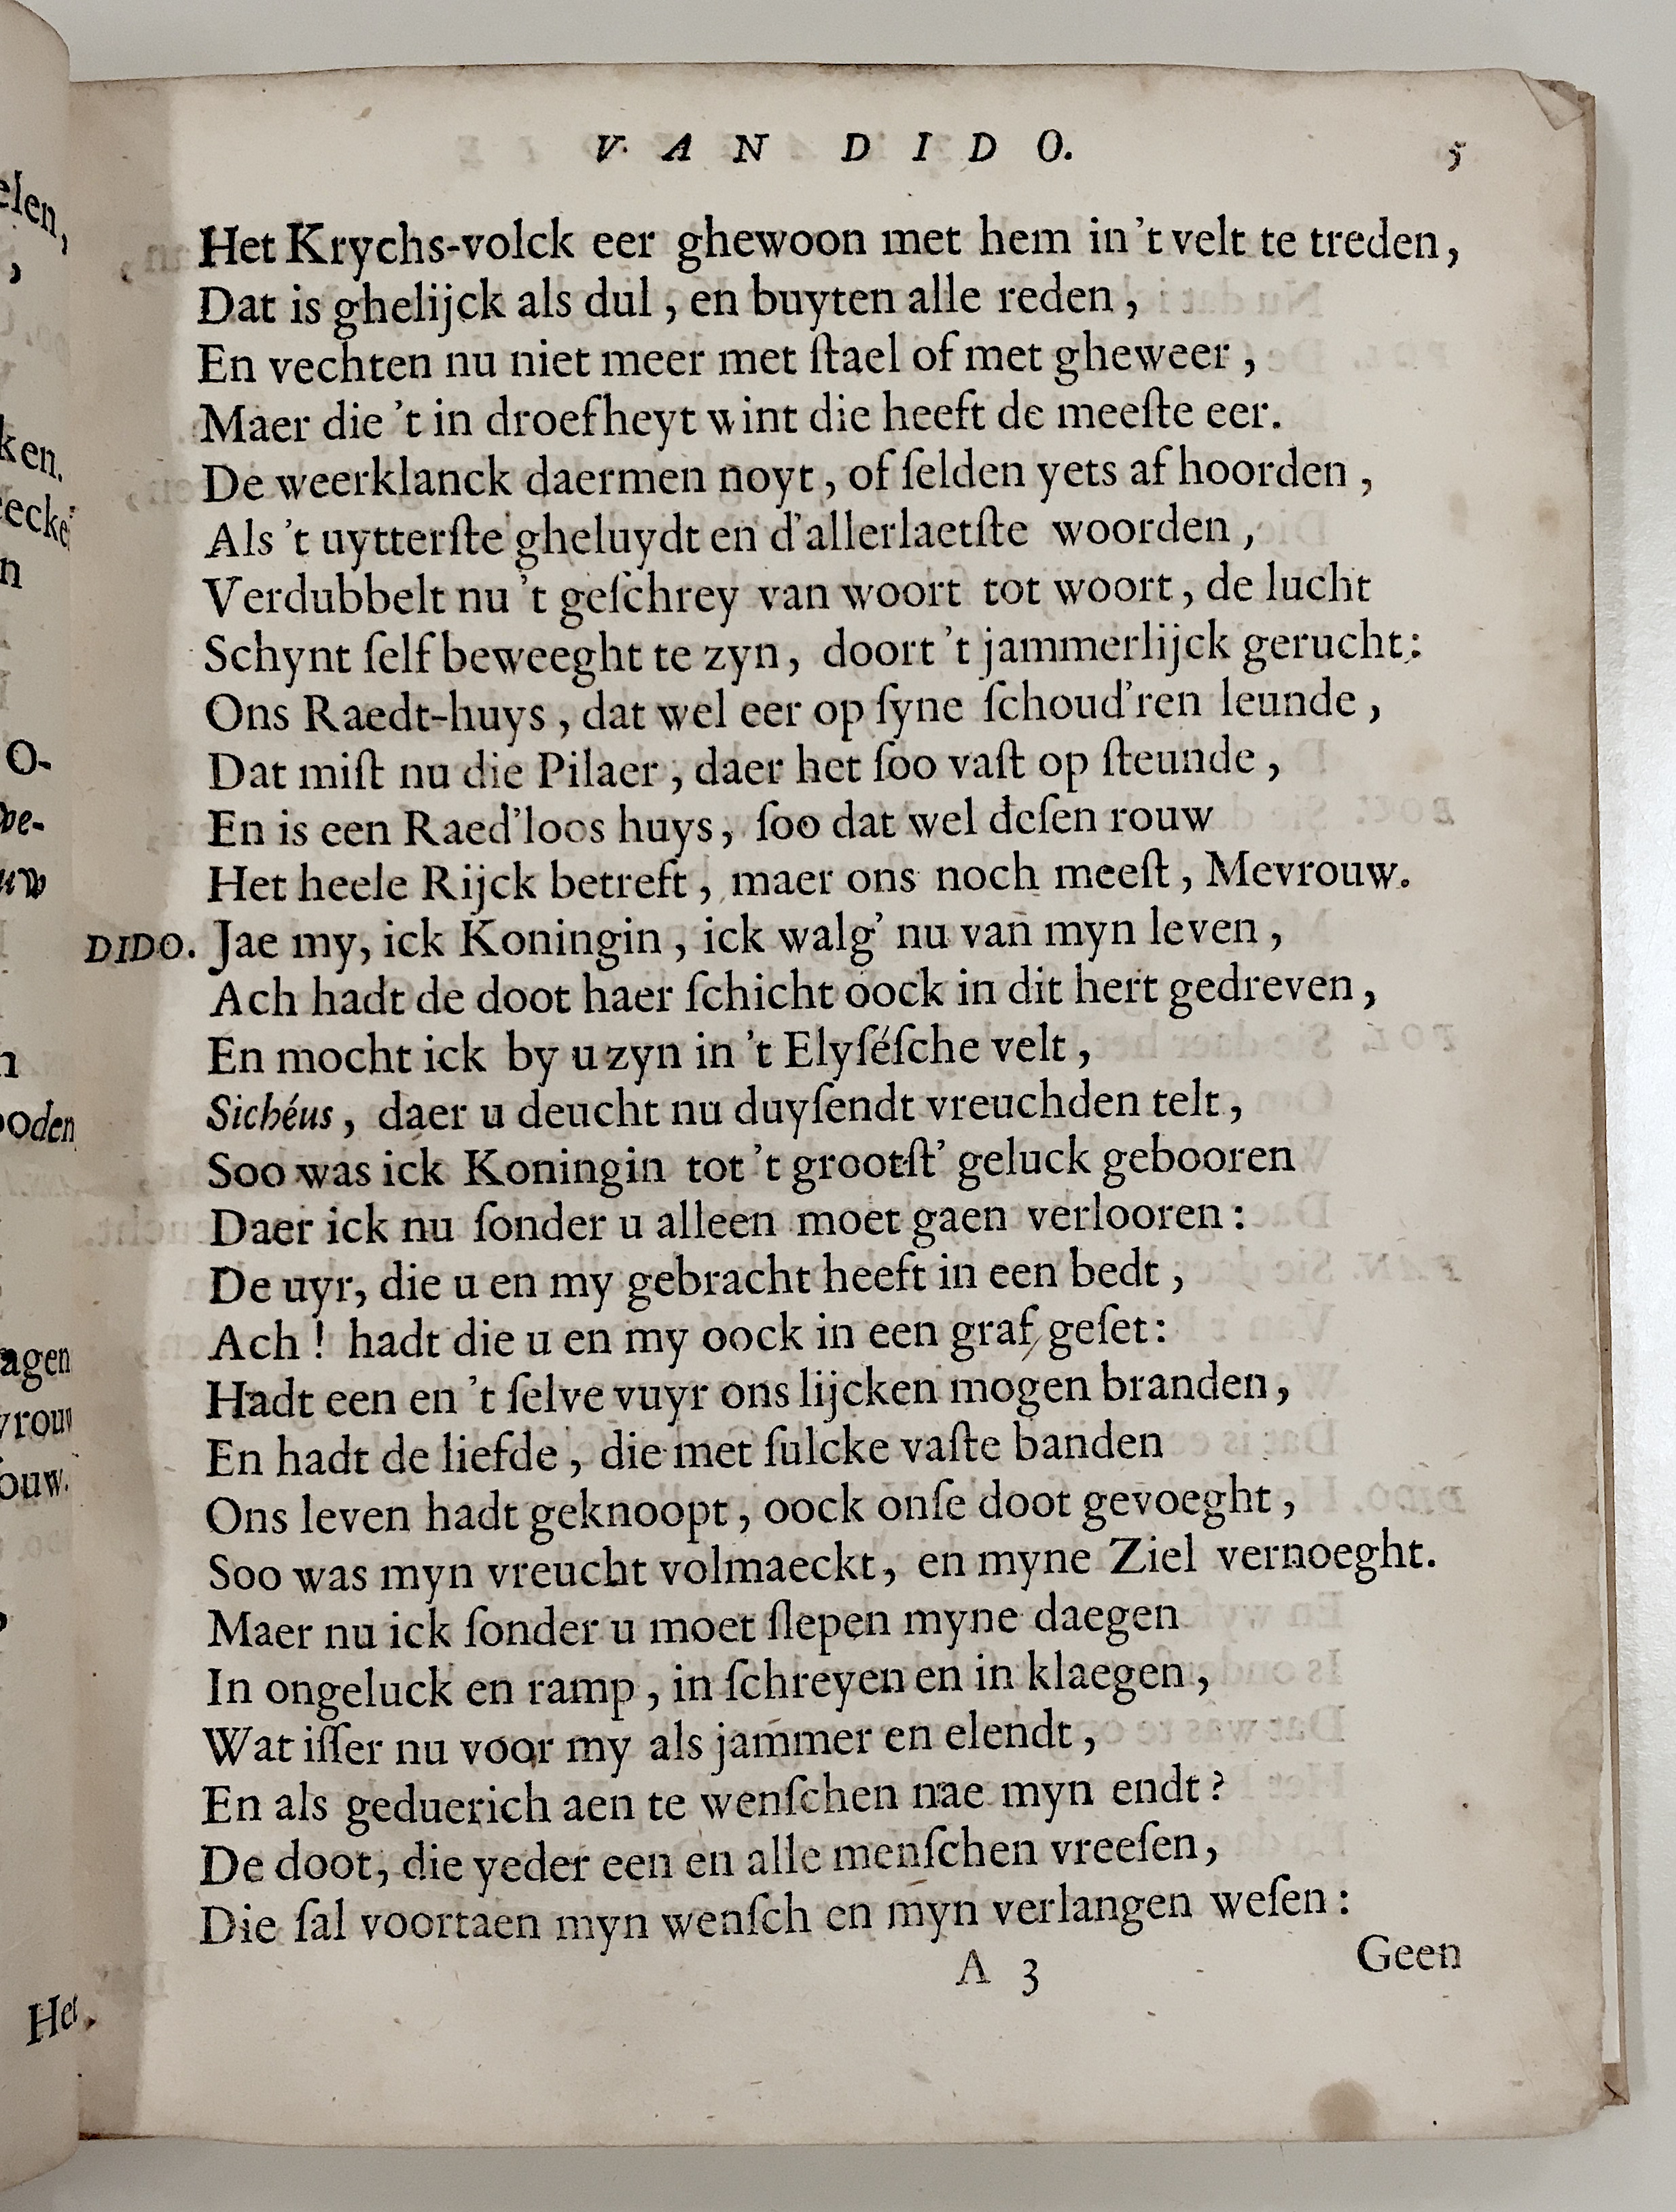 VAN DIDO. 5
Het Krychs-volck eer ghewoon met hem in 't velt te treden,
Dat is ghelijck als dul, en buyten alle reden,
En vechten nu niet meer met ſtael of met gheweer,
Maer die 't in droefheyt wint die heeft de meeſte eer.
De weerklanck daermen noyt, of ſelden yets af hoorden,
Als 't uytterſte gheluydt en d'allerlaetſte woorden,
Verdubbelt nu 't geſchrey van woort tot woort, de lucht
Schynt ſelf beweeght te zyn, doort 't jammerlijck gerucht:
Ons Raedt-huys, dat wel eer op ſyne ſchoud'ren leunde,
Dat miſt nu die Pilaer, daer het ſoo vaſt op ſteunde,
En is een Raed'loos huys, ſoo dat wel deſen rouw
Het heele Rijck betreft, maer ons noch meeſt, Mevrouw.
DIDO. Jae my, ick Koningin, ick walg' nu van myn leven,
Ach hadt de doot haer ſchicht oock in dit hert gedreven,
En mocht ick by u zyn in 't Elyſéſche velt,
Sichéus, daer u deucht nu duyſendt vreuchden telt,
Soo was ick Koningin tot 't grootſt' geluck gebooren
Daer ick nu ſonder u alleen moet gaen verlooren:
De uyr, die u en my gebracht heeft in een bedt,
Ach! hadt die u en my oock in een graf geſet:
Hadt een en 't ſelve vuyr ons lijcken mogen branden,
En hadt de liefde, die met ſulcke vaſte banden
Ons leven hadt geknoopt, oock onſe doot gevoeght,
Soo was myn vreucht volmaeckt, en myne Ziel vernoeght.
Maer nu ick ſonder u moet ſlepen myne daegen
In ongeluck en ramp, in ſchreyen en in klaegen,
Wat iſſer nu voor my als jammer en elendt,
En als geduerich aen te wenſchen nae myn endt?
De doot, die yeder een en alle menſchen vreeſen,
Die ſal voortaen myn wenſch en myn verlangen weſen:
A 3 Geen